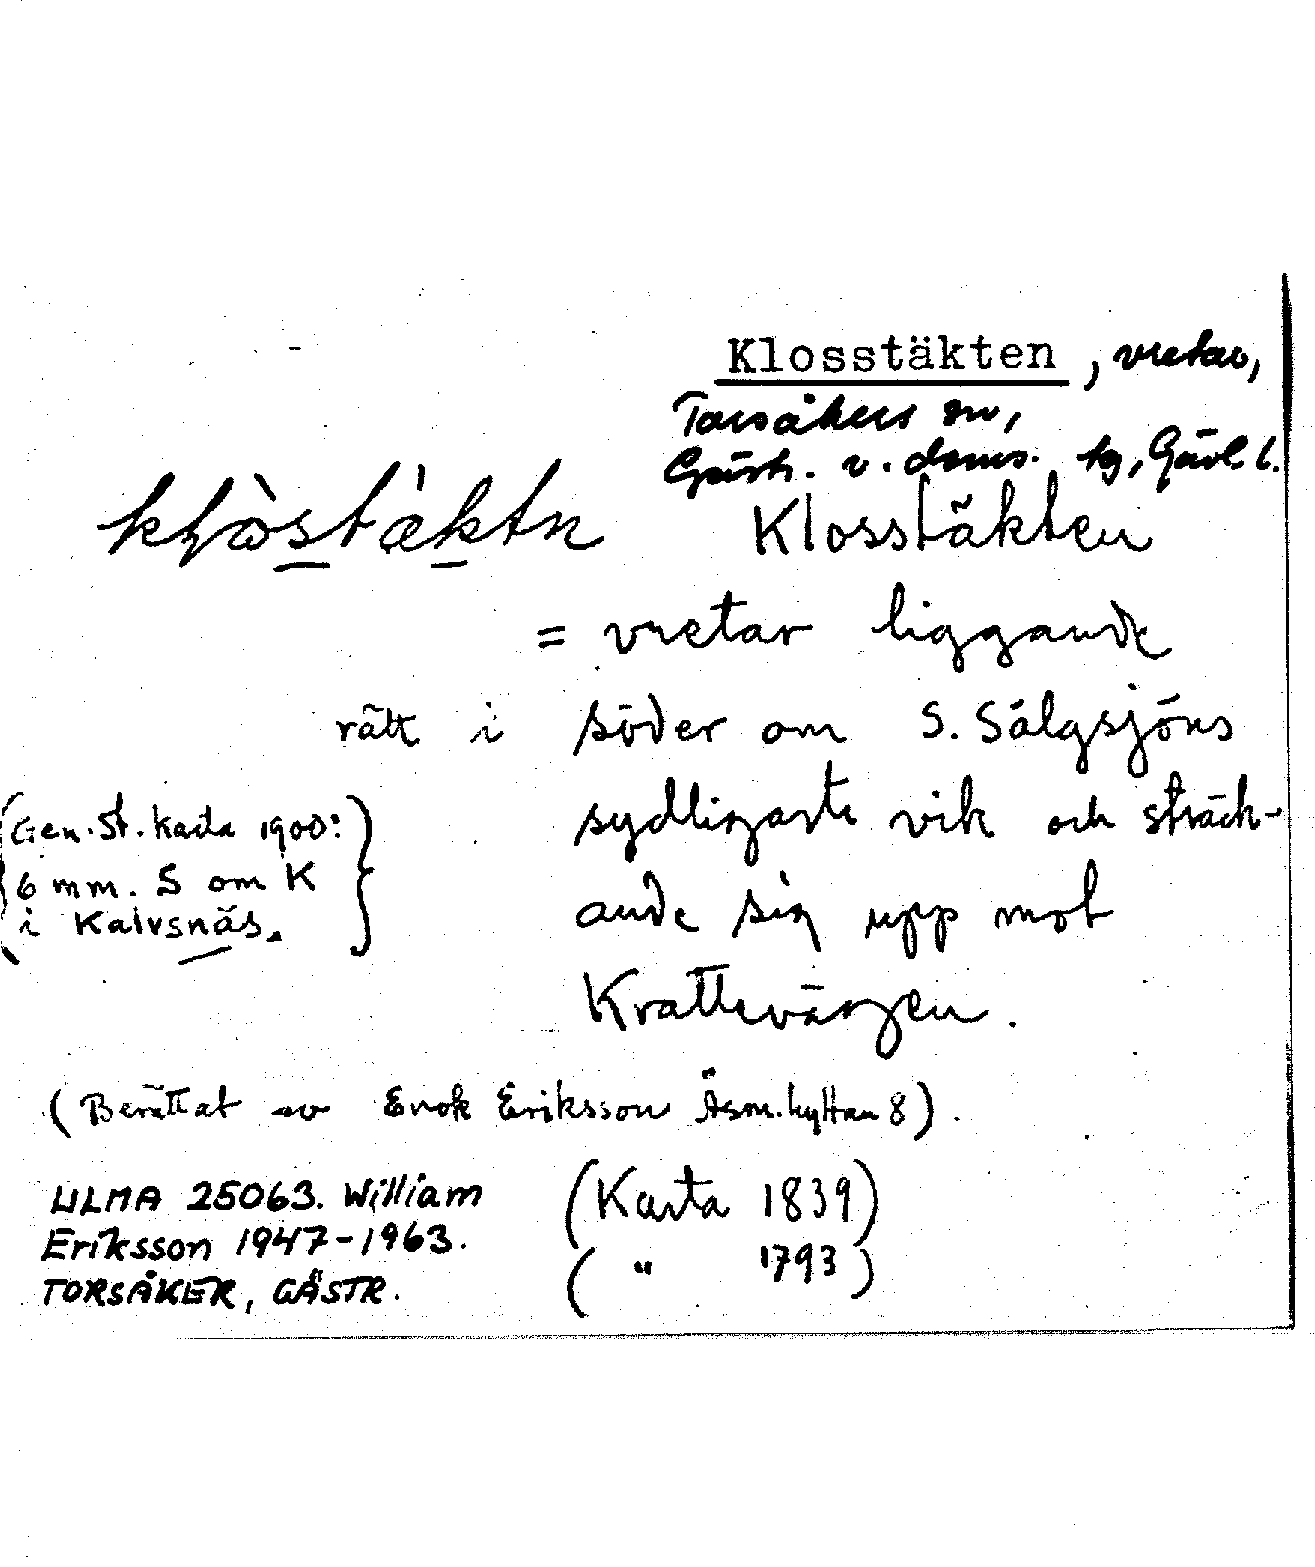 Klosstäkten, vretar,
Torsåkers sn,
Gästr. v. doms. tg, Gävl. l.
Klosstäkten
= vretar liggande
rätt i söder om S. Sälgsjöns
sydligaste vik och sträck-
ande sig upp mot
Krattevägen.
(Gen. St. karta 1900:
6 mm. S om K
i Kalvsnäs.)
(Berättat av Enok Eriksson Åsm.hyttan 8).
ULMA 25063. William
Eriksson 1947-1963.
TORSÅKER, GÄSTR.
(Karta 1839)
( " 1793)